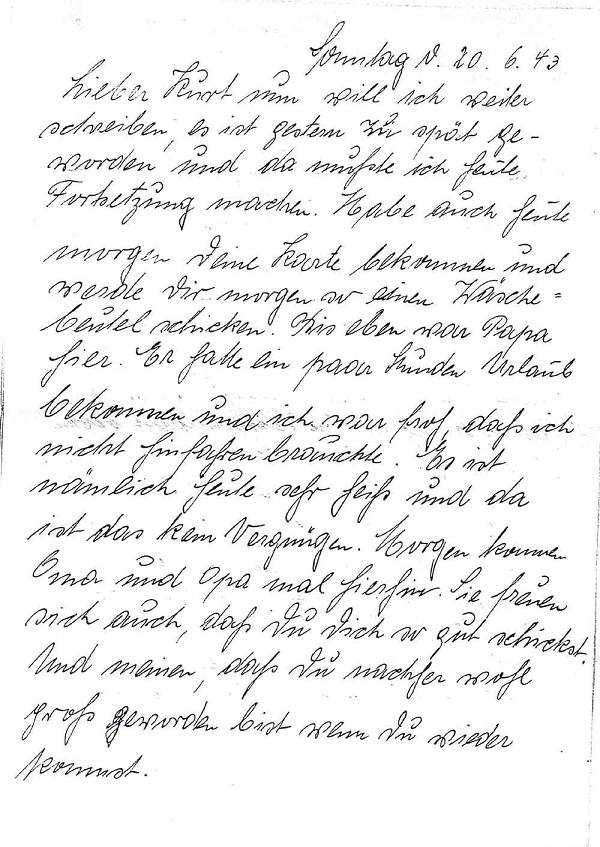 Sonntag d. 20. 6. 43
Lieber Kurt nun will ich weiter
schreiben, es ist gestern zu spät ge-
worden und da mußte ich heute
Fortsetzung machen. Habe auch heute
morgen Deine Karte bekommen und
werde Dir morgen so einen Wäsche=
beutel schicken. Bis eben war Papa
hier. Er hatte ein paar Stunden Urlaub
bekommen und ich war froh daß ich
nicht hinfahren brauchte. Es ist
nämlich heute sehr heiß und da
ist das kein Vergnügen. Morgen kommen
Oma und Opa mal hierhin. Sie freuen
sich auch, daß Du Dich so gut schickst.
Und meinen, daß Du nachher wohl
groß geworden bist wenn Du wieder
kommst.